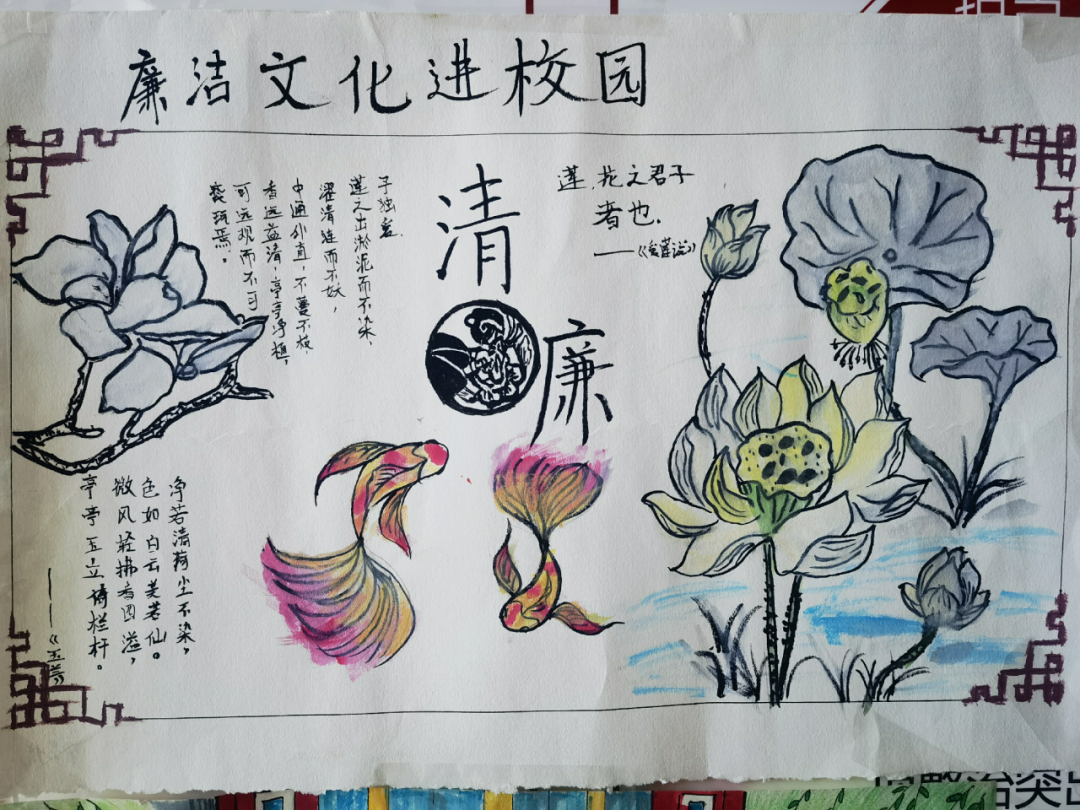 廉洁文化进校园
子独爱.
莲之出淤泥而不染、
濯清涟而不妖,
中通外直,不蔓不枝、
香远益清,亭亭净植,
可远观而不可
亵玩焉。
清
廉
莲,花之君子
者也.
——《爱莲说》
净若清荷尘不染,
色如白云美若仙。
微风轻拂香四溢,
亭亭玉立倚栏杆。
——《玉兰》
治突出